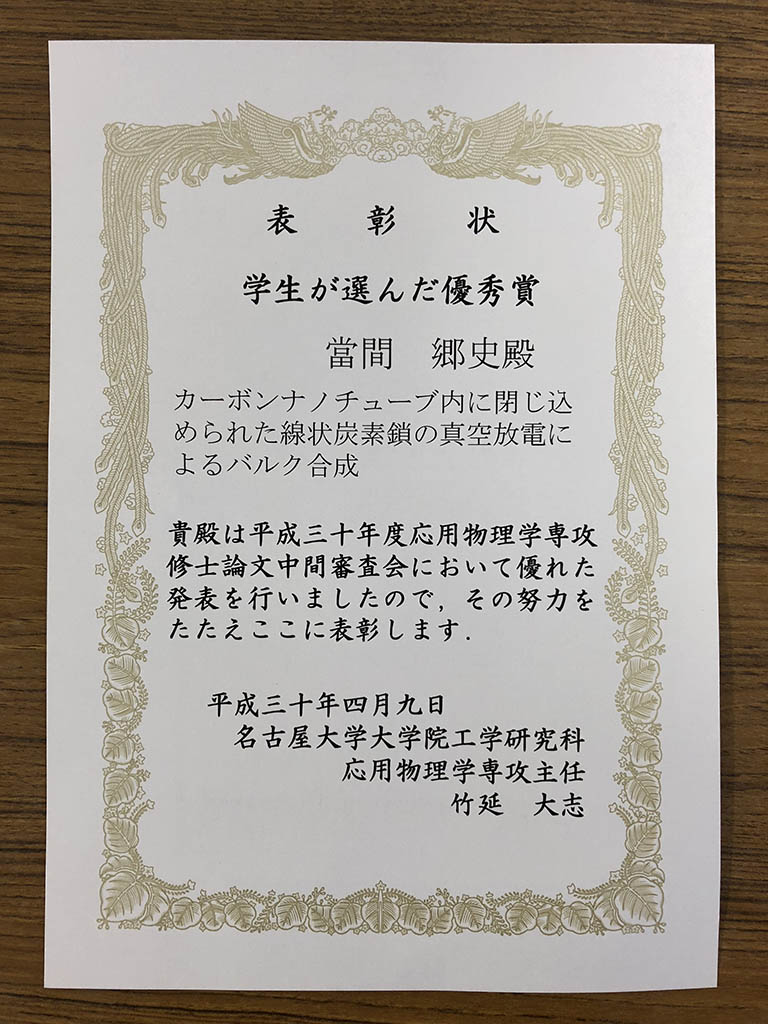 表 彰 状
学生が選んだ優秀賞
當間 郷史殿
カーボンナノチューブ内に閉じ込
められた線状炭素鎖の真空放電に
よるバルク合成
貴殿は平成三十年度応用物理学専攻
修士論文中間審査会において優れた
発表を行いましたので，その努力を
たたえここに表彰します．
平成三十年四月九日
名古屋大学大学院工学研究科
応用物理学専攻主任
竹延 大志